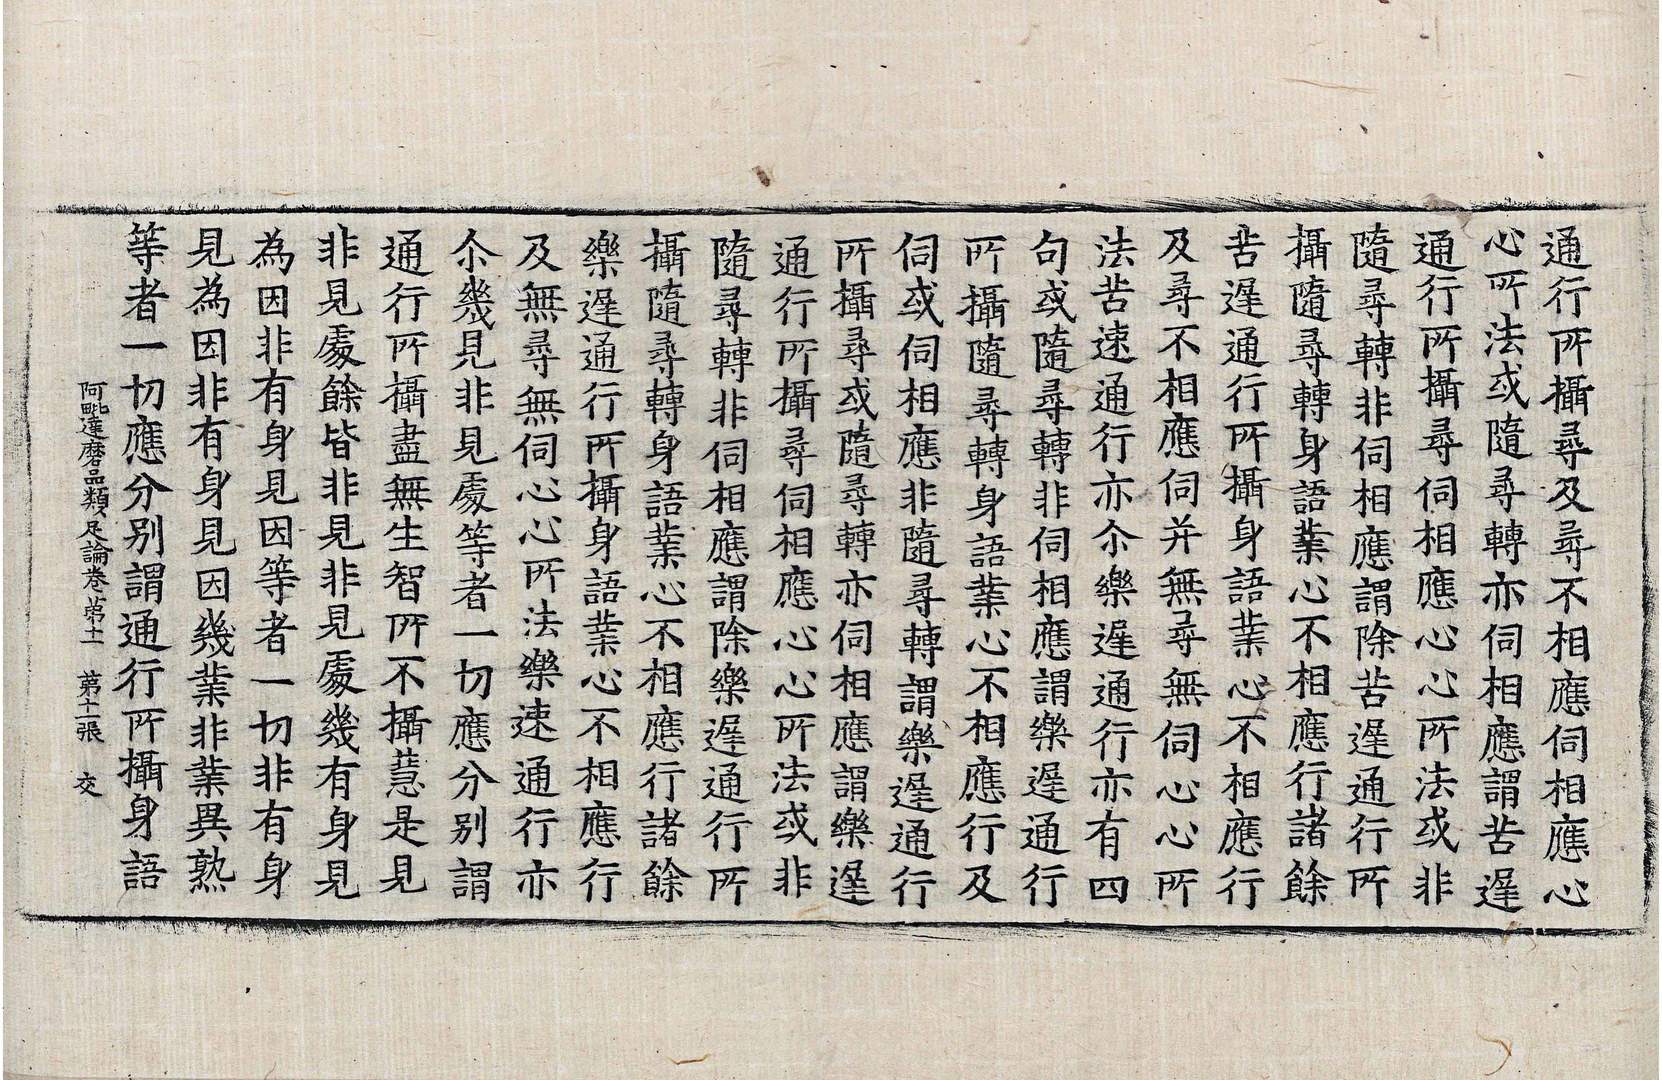 通行所攝尋及尋不相應伺相應心
心所法或隨尋轉亦伺相應謂苦遲
通行所攝尋伺相應心心所法或非
隨尋轉非伺相應謂除苦遲通行所
攝隨尋轉身語業心不相應行諸餘
苦遲通行所攝身語業心不相應行
及尋不相應伺并無尋無伺心心所
法苦速通行亦尒樂遲通行亦有四
句或隨尋轉非伺相應謂樂遲通行
所攝隨尋轉身語業心不相應行及
伺或伺相應非隨尋轉謂樂遲通行
所攝尋或隨尋轉亦伺相應謂樂遲
通行所攝尋伺相應心心所法或非
隨尋轉非伺相應謂除樂遲通行所
攝隨尋轉身語業心不相應行諸餘
樂遲通行所攝身語業心不相應行
及無尋無伺心心所法樂速通行亦
尒幾見非見處等者一切應分別謂
通行所攝盡無生智所不攝慧是見
非見處餘皆非見非見處幾有身見
為因非有身見因等者一切非有身
見為因非有身見因幾業非業異熟
等者一切應分別謂通行所攝身語
阿毗達磨品類足論卷第十一 第十一張 交